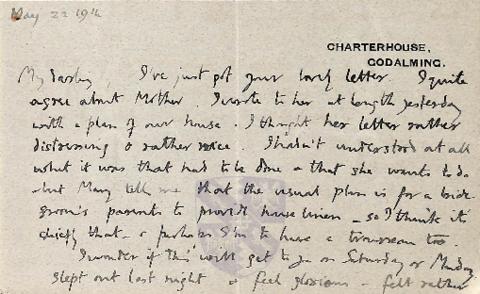 May 22 1914
CHARTERHOUSE,
GODALMING.
My darling, I've just got your lovely letter. I quite
agree about Mother. I wrote to her at length yesterday
with a plan of our house. I thought her letter rather
distressing & rather nice. I hadn't understood at all
what it was that had to be done & that she wants to do
- but Mary tells me that the usual plan is for a bride
groom's parents to provide house linen - so I think it's
chiefly that - & perhaps I'm to have a trousseau too.
I wonder if this will get to you on Saturday or Monday
I slept out last night & feel glorious - felt rather